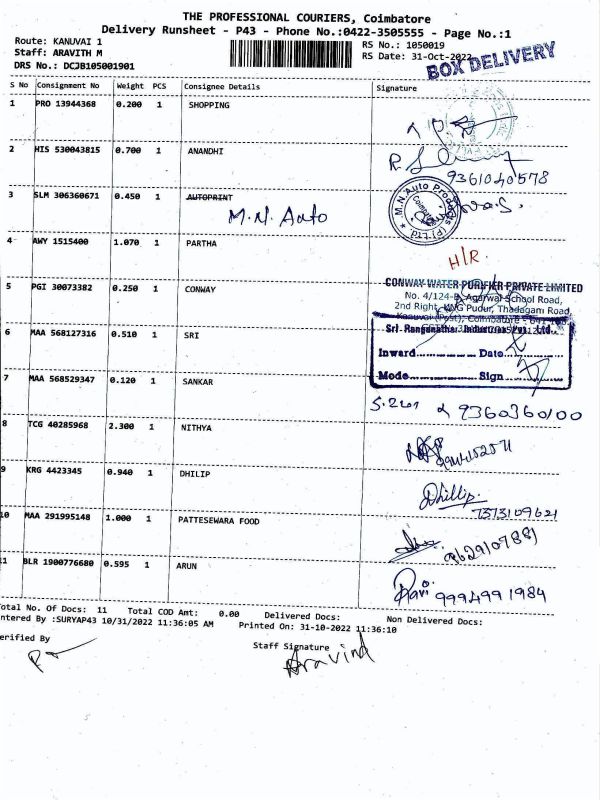 THE PROFESSIONAL COURIERS, Coimbatore
Delivery Runsheet - P43 - Phone No.:0422-3505555 - Page No.:1
Route: KANUVAI 1
RS No.: 1050019
Staff: ARAVITH M
RS Date: 31-Oct-2022
DRS No.: DCJB105001901
BOX DELIVERY
S No Consignment No Weight PCS Consignee Details Signature
1 PRO 13944368 0.200 1 SHOPPING
2 HIS 530043815 0.700 1 ANANDHI
9361040578
3 SLM 306360671 0.450 1 AUTOPRINT
M.N. Auto
M.N. Auto Products (P) Ltd.
4 AWY 1515400 1.070 1 PARTHA
H/R.
5 PGI 30073382 0.250 1 CONWAY
CONWAY WATER PURIFIER PRIVATE LIMITED
No. 4/124-B, Agarwal School Road,
2nd Right, KNG Pudur, Thadagam Road,
6 MAA 568127316 0.510 1 SRI
Sri Ranganathar Industries Pvt. Ltd.,
Inward.............. Date
Mode.............. Sign
7 MAA 568529347 0.120 1 SANKAR
9360360100
8 TCG 40285968 2.300 1 NITHYA
9 KRG 4423345 0.940 1 DHILIP
Dhillip.
7373109621
10 MAA 291995148 1.000 1 PATTESEWARA FOOD
9629107881
11 BLR 1900776680 0.595 1 ARUN
Ravi 9994991984
Total No. Of Docs: 11 Total COD Amt: 0.00 Delivered Docs: Non Delivered Docs:
ntered By :SURYAP43 10/31/2022 11:36:05 AM Printed On: 31-10-2022 11:36:10
erified By
Staff Signature
Aravind